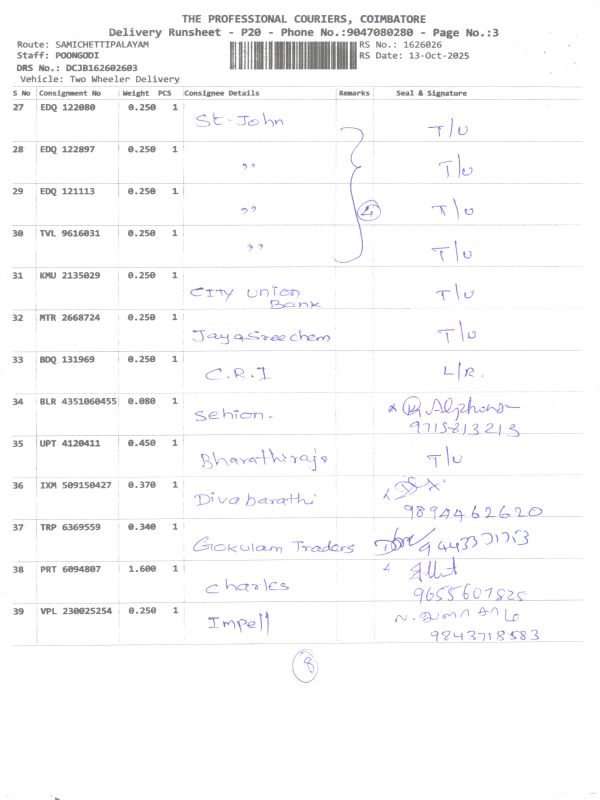 THE PROFESSIONAL COURIERS, COIMBATORE
Delivery Runsheet - P20 - Phone No.:9047080280 - Page No.:3
Route: SAMICHETTIPALAYAM RS No.: 1626026
Staff: POONGODI RS Date: 13-Oct-2025
DRS No.: DCJB162602603
Vehicle: Two Wheeler Delivery
S No Consignment No Weight PCS Consignee Details Remarks Seal & Signature
27 EDQ 122080 0.250 1 St. John T/U
28 EDQ 122897 0.250 1 ,, T/U
29 EDQ 121113 0.250 1 ,, 4 T/U
30 TVL 9616031 0.250 1 ,, T/U
31 KMU 2135029 0.250 1 CITY Union Bank T/U
32 MTR 2668724 0.250 1 Jayasreechem T/U
33 BDQ 131969 0.250 1 C.R.I L/R.
34 BLR 4351060455 0.080 1 Sehion. Alphons
9715813213
35 UPT 4120411 0.450 1 Bharathiraja T/U
36 IXM 509150427 0.370 1 Divabarathi
9894462620
37 TRP 6369559 0.340 1 Gokulam Traders
38 PRT 6094807 1.600 1 Charles
39 VPL 230025254 0.250 1 Impell
9843718583
8